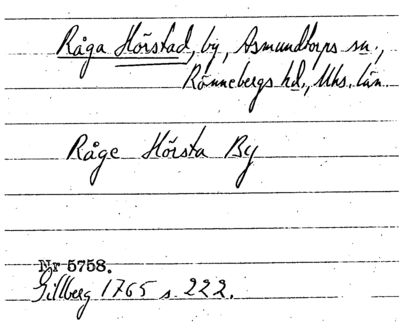 Råga Hörstad, by, Asmundtorps sn.,
Rönnebergs hd., Mhs. län.
Råge Hörsta By
Nr 5758.
Gillberg 1765 s. 222.